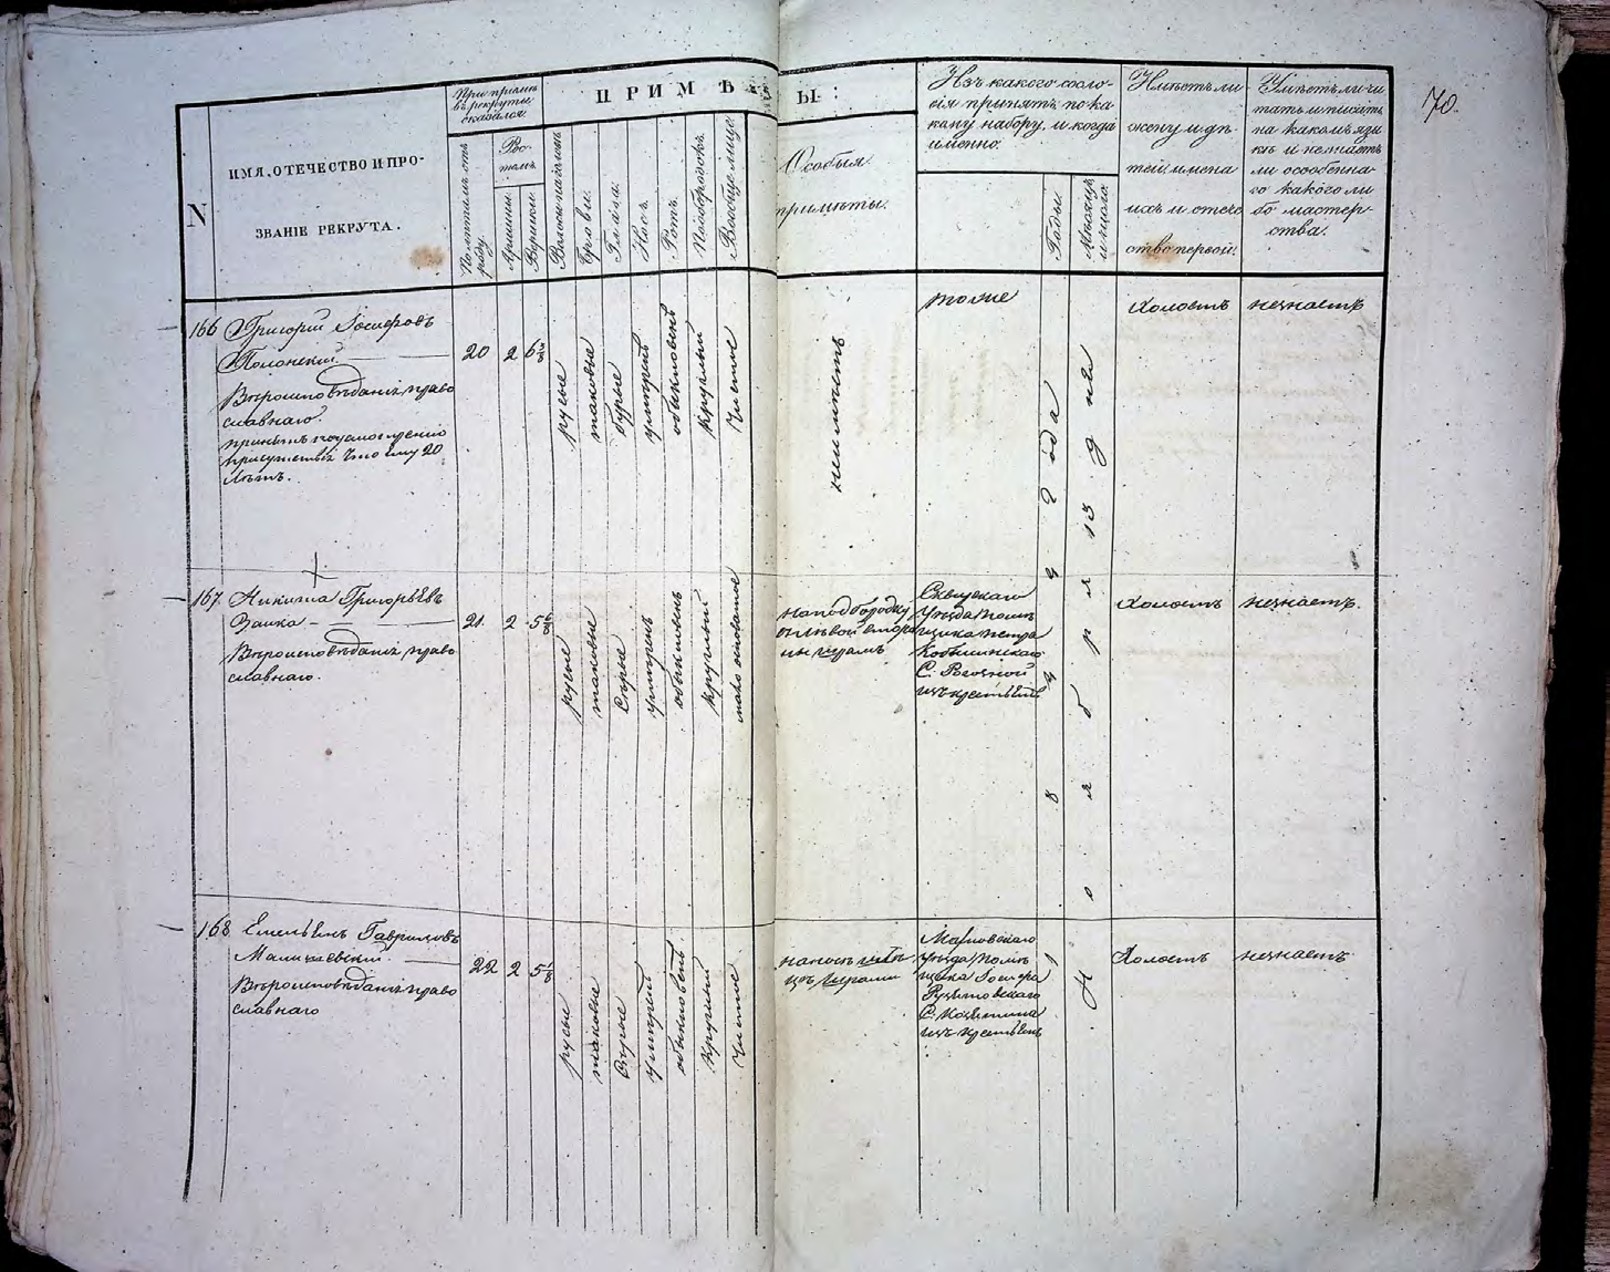 70.
N
ИМЯ, ОТЕЧЕСТВО И ПРО-
ЗВАНІЕ РЕКРУТА.
При пріемѣ
въ рекруты
оказался.
По лѣтамъ отъ
роду.
Ро-
стомъ.
Аршины.
Вершки.
ПРИМѢТЫ:
Волосы на головѣ
Брови.
Глаза.
Носъ.
Ротъ.
Подбородокъ.
Вообще лице.
Особыя
примѣты.
Изъ какого сосло-
вія принятъ, по ка-
кому набору, и когда
именно.
Годы.
Мѣсяцы
и числа.
Имѣетъ ли
жену и дѣ-
тей; имена
ихъ и отече
ство первой.
Умѣетъ ли чи
тать и писать
на какомъ язы
кѣ и не знаетъ
ли особенна-
го какого ли
бо мастер-
ства.
166 Григорій Іосифовъ
Полонскій
Вѣроисповѣданія право
славнаго.
принятъ по усмотренію
присутствія что ему 20
лѣтъ.
20
2
6 3/8
русые
таковые
бурые
умѣренъ
обыкновенъ
круглый
чистое
неимѣетъ
тоже
холостъ
незнаетъ
167. Никита Григорьевъ
Заика
Вѣроисповѣданія право
славнаго.
21.
2
5 6/8
русые
таковые
Сѣрые
умѣренъ
обыкновенъ
круглый
мало осповатое
на подбородку
съ лѣвой сторо
ны шрамъ
Сквирскаго
уѣзда помѣ
щика Петра
С.
изъ крестьянъ
холостъ
незнаетъ.
168 Емельянъ Гавриловъ
Вѣроисповѣданія право
славнаго
22
2
5 1/8
русые
таковые
Сѣрые
умѣренъ
обыкновенъ.
круглый
чистое
шрамы
уѣзда помѣ
щика Іосифа
С.
изъ крестьянъ
холостъ
незнаетъ
1 8 4 9 года
Ноября 13 дня